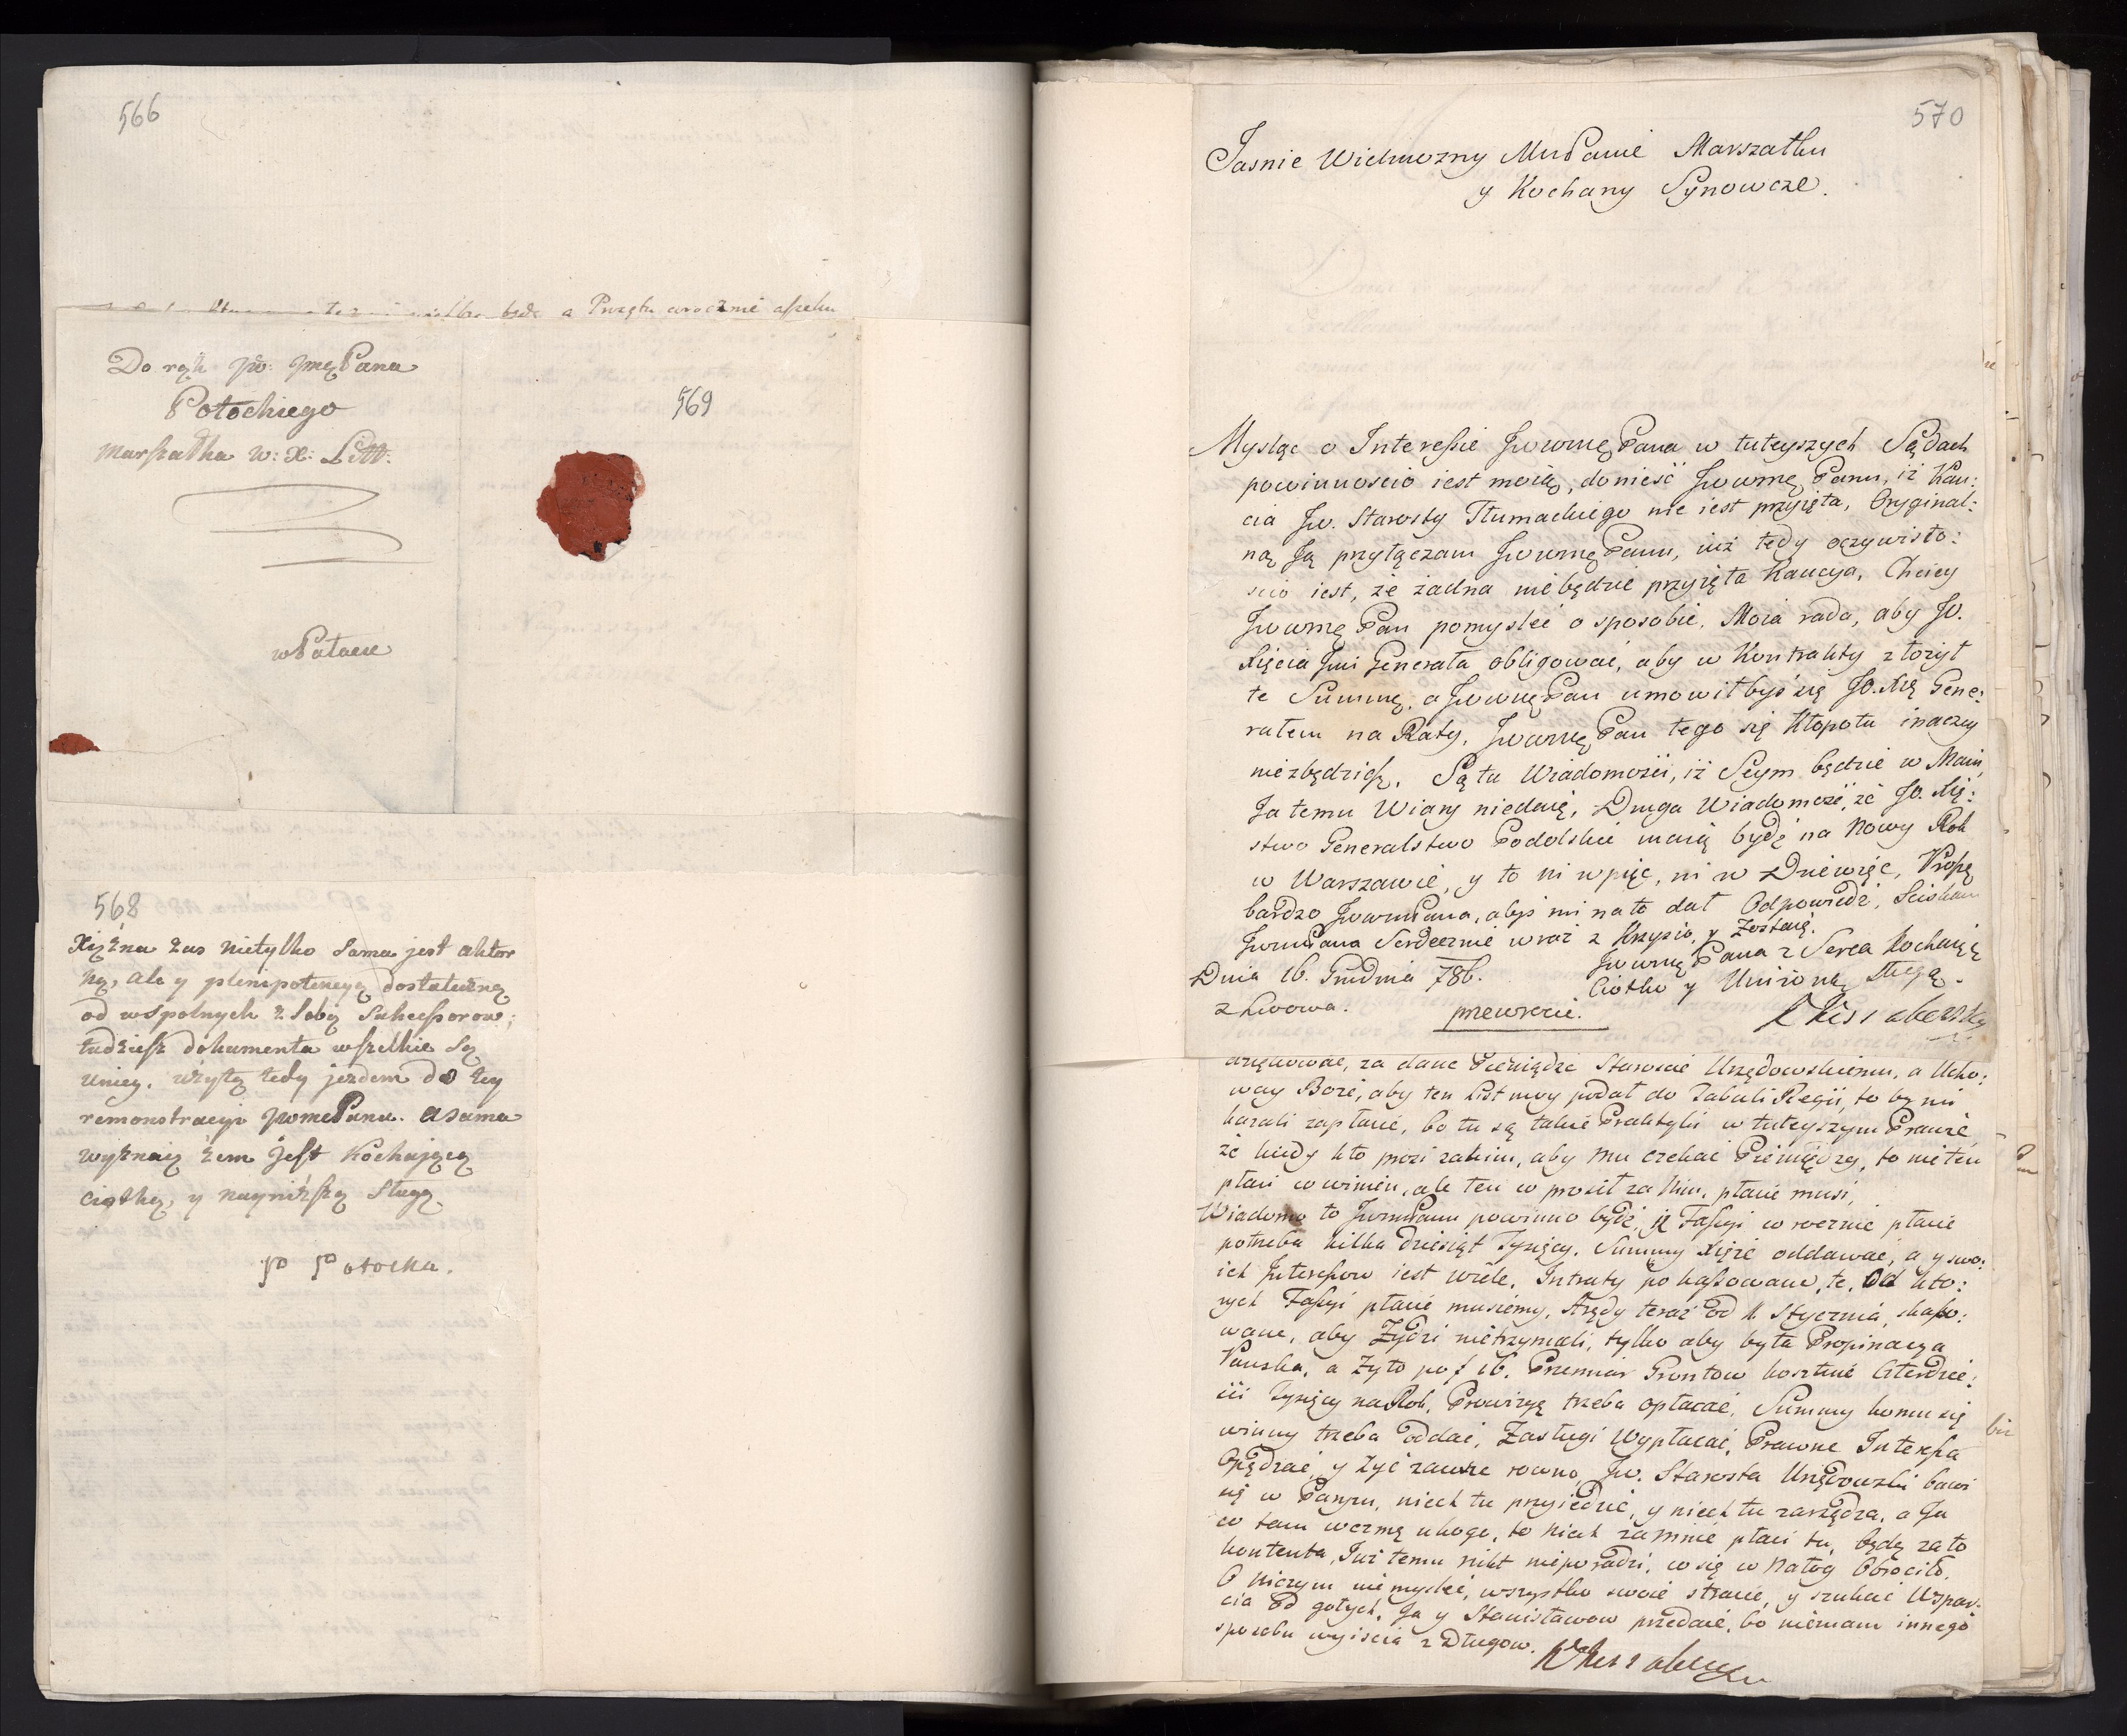 566
a Przęta
Do rąk JW: JmęPana
Potockiego
Marszałka W: X: Litt:
wPałacu
569
568
Xiężna zas nietylko sama jest aktor
ką, ale y plenipotencyą dostateczną
od wspolnych z sobą Sukcessorow;
tudziesz dokumenta wszelkie są
uniey. użytą tedy jezdem do tey
remonstracyi JWMPanu. a sama
wyznaię żem jest kochaiącą
ciotką, y nayniższą sługą
P Potocka.
570
Jasnie Wielmozny MudPanie Marszałku
y Kochany Synowcze.
Mysląc o Interessie JwwmęPana w tuteyszych Sądach
powinnoscio iest moią, donieść Jwwmę Panu, iż Kau:
cia Jw. Starosty Tłumackiego nie iest przyięta, Oryginal:
ną Ją przyłączam JwwmęPanu, iuż tedy oczywisto:
scio iest, że żadna niebędzie przyięta Kaucya, Chciey
Jwwmę Pan pomysleć o sposobie. Moia rada, aby JO.
Xięcia Jmi Generała obligować, aby w Kontrakty złożył
te Summę, a JwwmęPan umowiłbyś się JO. Xię Gene:
rałem na Raty, Jwwmę Pan tego się Kłopotu inaczey
niezbędzisz. Są tu Wiadomości, iż Seym będzie w Maiu,
Ja temu Wiary niedaię, Druga Wiadomość, że JO. Xię:
stwo Generalstwo Podolskie maią bydź na Nowy Rok
w Warszawie, y to ni wpięc, ni w Dziewięc, Proszę
bardzo JwwmPana, abyś mi na to dał Odpowiedź, Sciskam
JwwmPana Serdecznie wraz z Krysio, y Zostaię.
Jwwmę Pana z Serca Kochaiącą
Ciotko y Uniżoną Sługą.
Dnia 16. Grudnia 786.
z Lwowa.
przewrocie.
za dane Pieniądze Staroscie Urzędowskiemu, a Ucho:
way Boże, aby ten List moy podał do Tabuli Regii, to by mi
kazali zapłacić, bo tu są takie Praktyki w tuteyszym Prawie,
że kiedy kto prosi zakim, aby mu czekać Pieniędzy, to nie ten
płaci co winien, ale ten co prosił za Nim, płacić musi,
Wiadomo to JwwmPanu powinno bydź, iż Fassyi co rocznie płacić
potrzeba kilka dziesiąt Tysięcy. Summy Xięże oddawać, a y swo:
ich Interessow iest wiele. Intraty po kassowane, te, Od kto:
rych Fassyi płacić musiemy, Arędy teraz od 1. Stycznia, skasso:
wane, aby Żydzi nietrzymali, tylko aby była Propinacya
Pańska, a Żyto po f 16. Przemiar Gruntow kosztuie Czterdzie:
ści Tysięcy na Rok, Prowizyę trzeba opłacać, Summy komu się
winny trzeba oddać, Zasługi Wypłacać, Prawne Interessa
Opędzać, y żyć zawsze rowno, Jw. Starosta Urzędowski bawi
się w Paryżu, niech tu przyiedzie, y niech tu zarządza, a Ja
co tam wezmę ukogo, to niech zamnie płaci tu, będę za to
kontenta, Już temu nikt nieporadzi, co się w Nałog Obrociło.
O niczym niemysleć, wszystko swoie stracić, y szukać Wspar:
cia od gołych. Ja y Stanisławow przedaię, bo niemam innego
sposobu wyiscia z Długow.